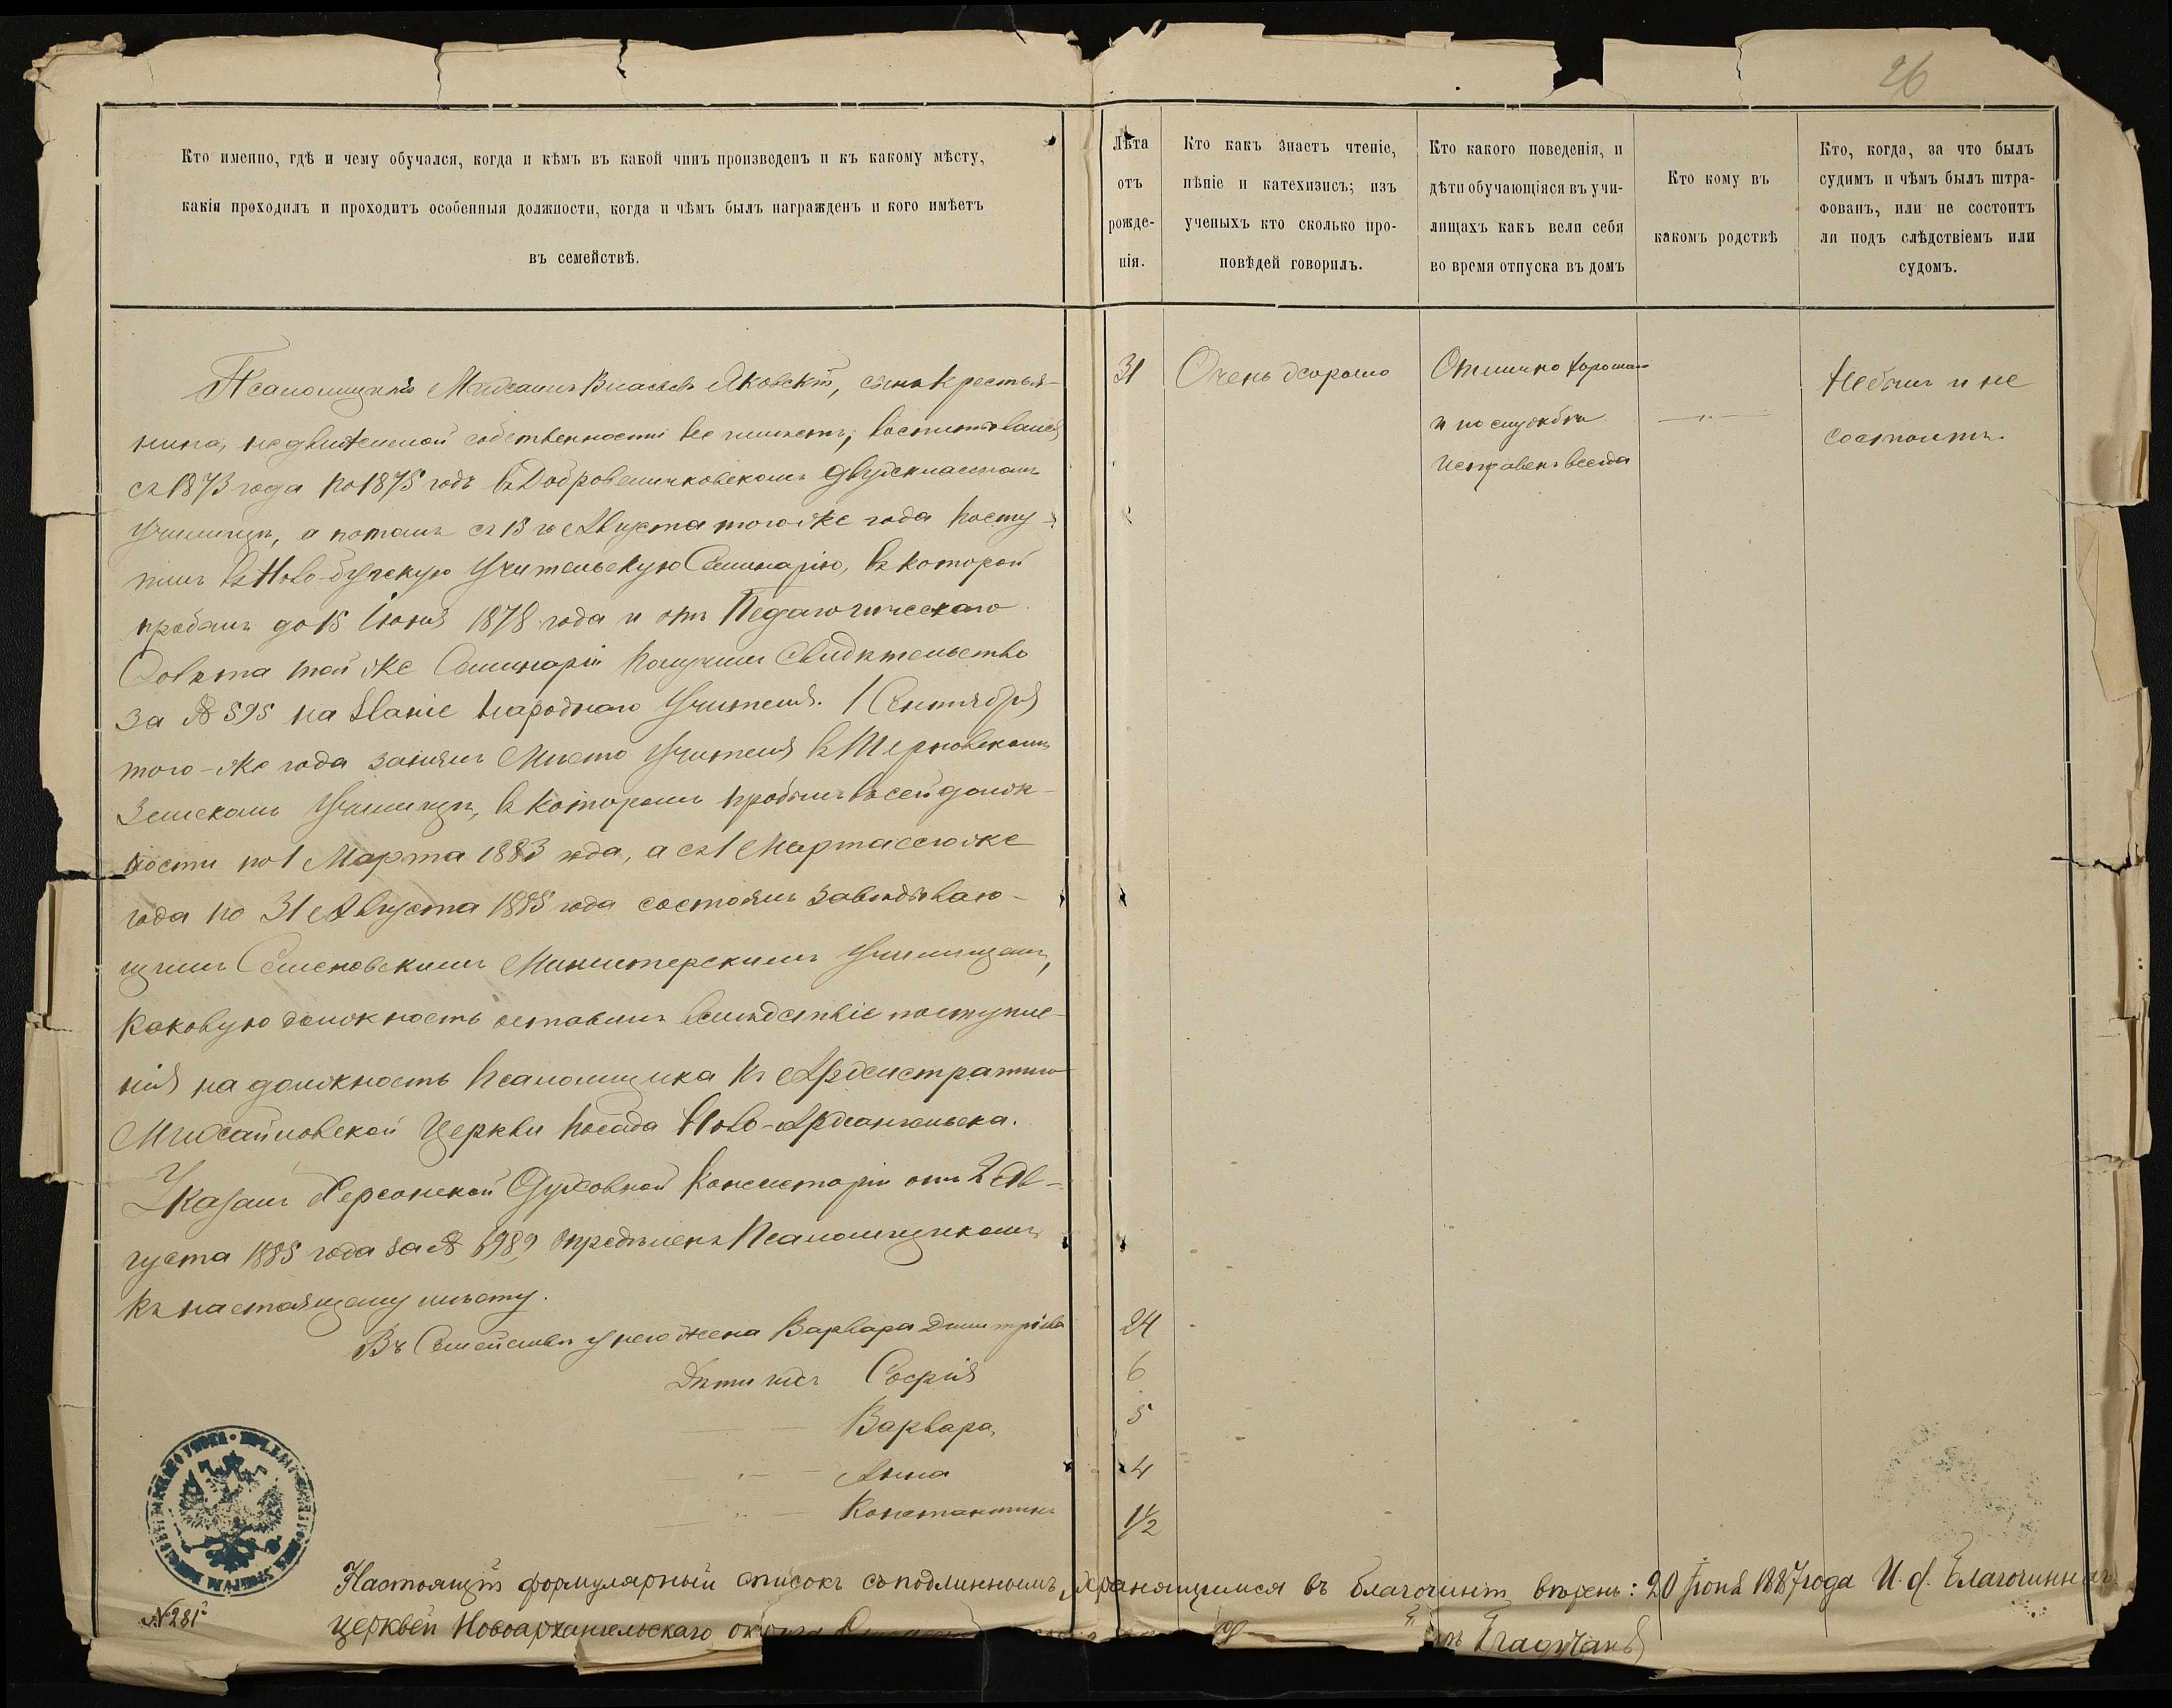 26
Кто именно, гдѣ и чему обучался, когда и кѣмъ въ какой чинъ произведенъ и къ какому мѣсту,
какія проходилъ и проходитъ особенныя должности, когда и чѣмъ былъ награжденъ и кого имѣетъ
въ семействѣ.
Лѣта
отъ
рожде-
нія.
Кто какъ знаетъ чтеніе,
пѣніе и катехизисъ; изъ
ученыхъ кто сколько про-
повѣдей говорилъ.
Кто какого поведенія, и
дѣти обучающіяся въ учи-
лищахъ какъ вели себя
во время отпуска въ домъ
Кто кому въ
какомъ родствѣ
Кто, когда, за что былъ
судимъ и чѣмъ былъ штра-
фованъ, или не состоитъ
ли подъ слѣдствіемъ или
судомъ.
Псаломщикъ Михаилъ Власьевъ Яковскій, сынъ крестья-
нина, недвижимой собственности не имѣетъ, воспитывался
съ 1873 года по 1875 годъ въ Добровеличковскомъ двухклассномъ
училищѣ, а потомъ съ 15 го Августа того же года посту-
пилъ въ Ново-бугскую Учительскую Семинарію, въ которой
пробылъ до 15 Іюня 1878 года и отъ Педагогическаго
Совѣта той же Семинаріи получилъ Свидѣтельство
за № 595 на званіе народнаго Учителя. 1 Сентября
того-же года занялъ Мѣсто Учителя въ Терновскомъ
Земскомъ Училищѣ, въ которомъ пробылъ въ сей долж-
ности по 1 Марта 1883 года, а съ 1 Марта сего же
года по 31 Августа 1885 года состоялъ завѣдываю-
щимъ Семеновскимъ Министерскимъ Училищемъ,
каковую должность оставилъ вслѣдствіе поступле-
нія на должность псаломщика къ Архистратиго
Михайловской Церкви посада Ново-Архангельска.
Указомъ Херсонской Духовной Консисторіи отъ 2 Ав-
густа 1885 года за № 6989 опредѣленъ Псаломщикомъ
къ настоящему мѣсту.
31
Очень хорошо
Отлично хорошаго
и по службѣ
исправенъ всегда
— " —
Не былъ и не
состоитъ.
Въ Семействѣ у него жена Варвара Дмитріева 24
Дѣти ихъ София 6
— Варвара 5
" — Анна 4
" — Константинъ 1½
Настоящій формулярный списокъ съ подлиннымъ, хранящимся въ благочиніи вѣренъ: 20 Іюня 1887 года И. д. Благочиннаго
№ 281
церквей Новоархангельскаго округа